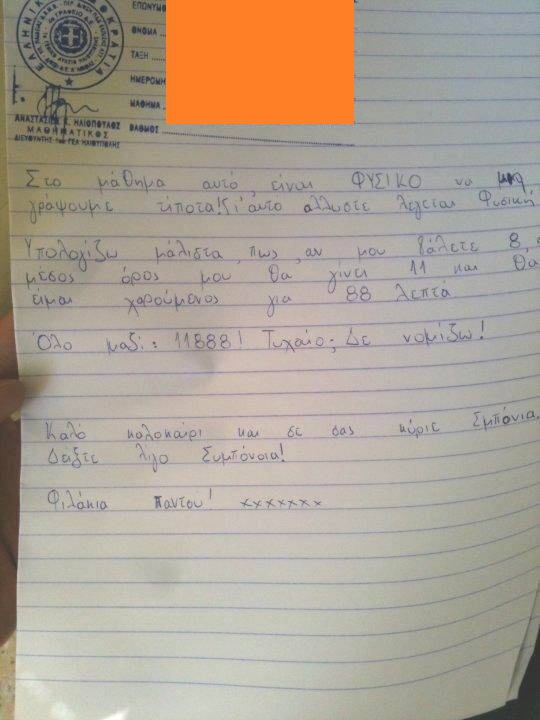 ΕΛΛΗΝΙΚΗ ΔΗΜΟΚΡΑΤΙΑ
ΕΠΩΝΥΜΟ
ΟΝΟΜΑ
ΤΑΞΗ
ΗΜΕΡΟΜΗ
ΜΑΘΗΜΑ
ΒΑΘΜΟΣ
ΑΝΑΣΤΑΣΙΟΣ Κ. ΗΛΙΟΠΟΥΛΟΣ
ΜΑΘΗΜΑΤΙΚΟΣ
ΔΙΕΥΘΥΝΤΗΣ 1ου ΓΕΛ ΗΛΙΟΥΠΟΛΗΣ
Στο μάθημα αυτό, είναι ΦΥΣΙΚΟ να μην
γράψουμε τίποτα! Γι'αυτό αλλωστε λέγεται Φυσική
Υπολογίζω μάλιστα, πως, αν μου βάλετε 8, ο
μέσος όρος μου θα γίνει 11 και θα
είμαι χαρούμενος για 88 λεπτά
Όλο μαζί: 11888! Τυχαίο; Δε νομίζω!
Καλό καλοκαίρι και σε σας κύριε Σμπόνια.
Δείξτε λίγο Συμπόνοια!
Φιλάκια παντού! xxxxxxx